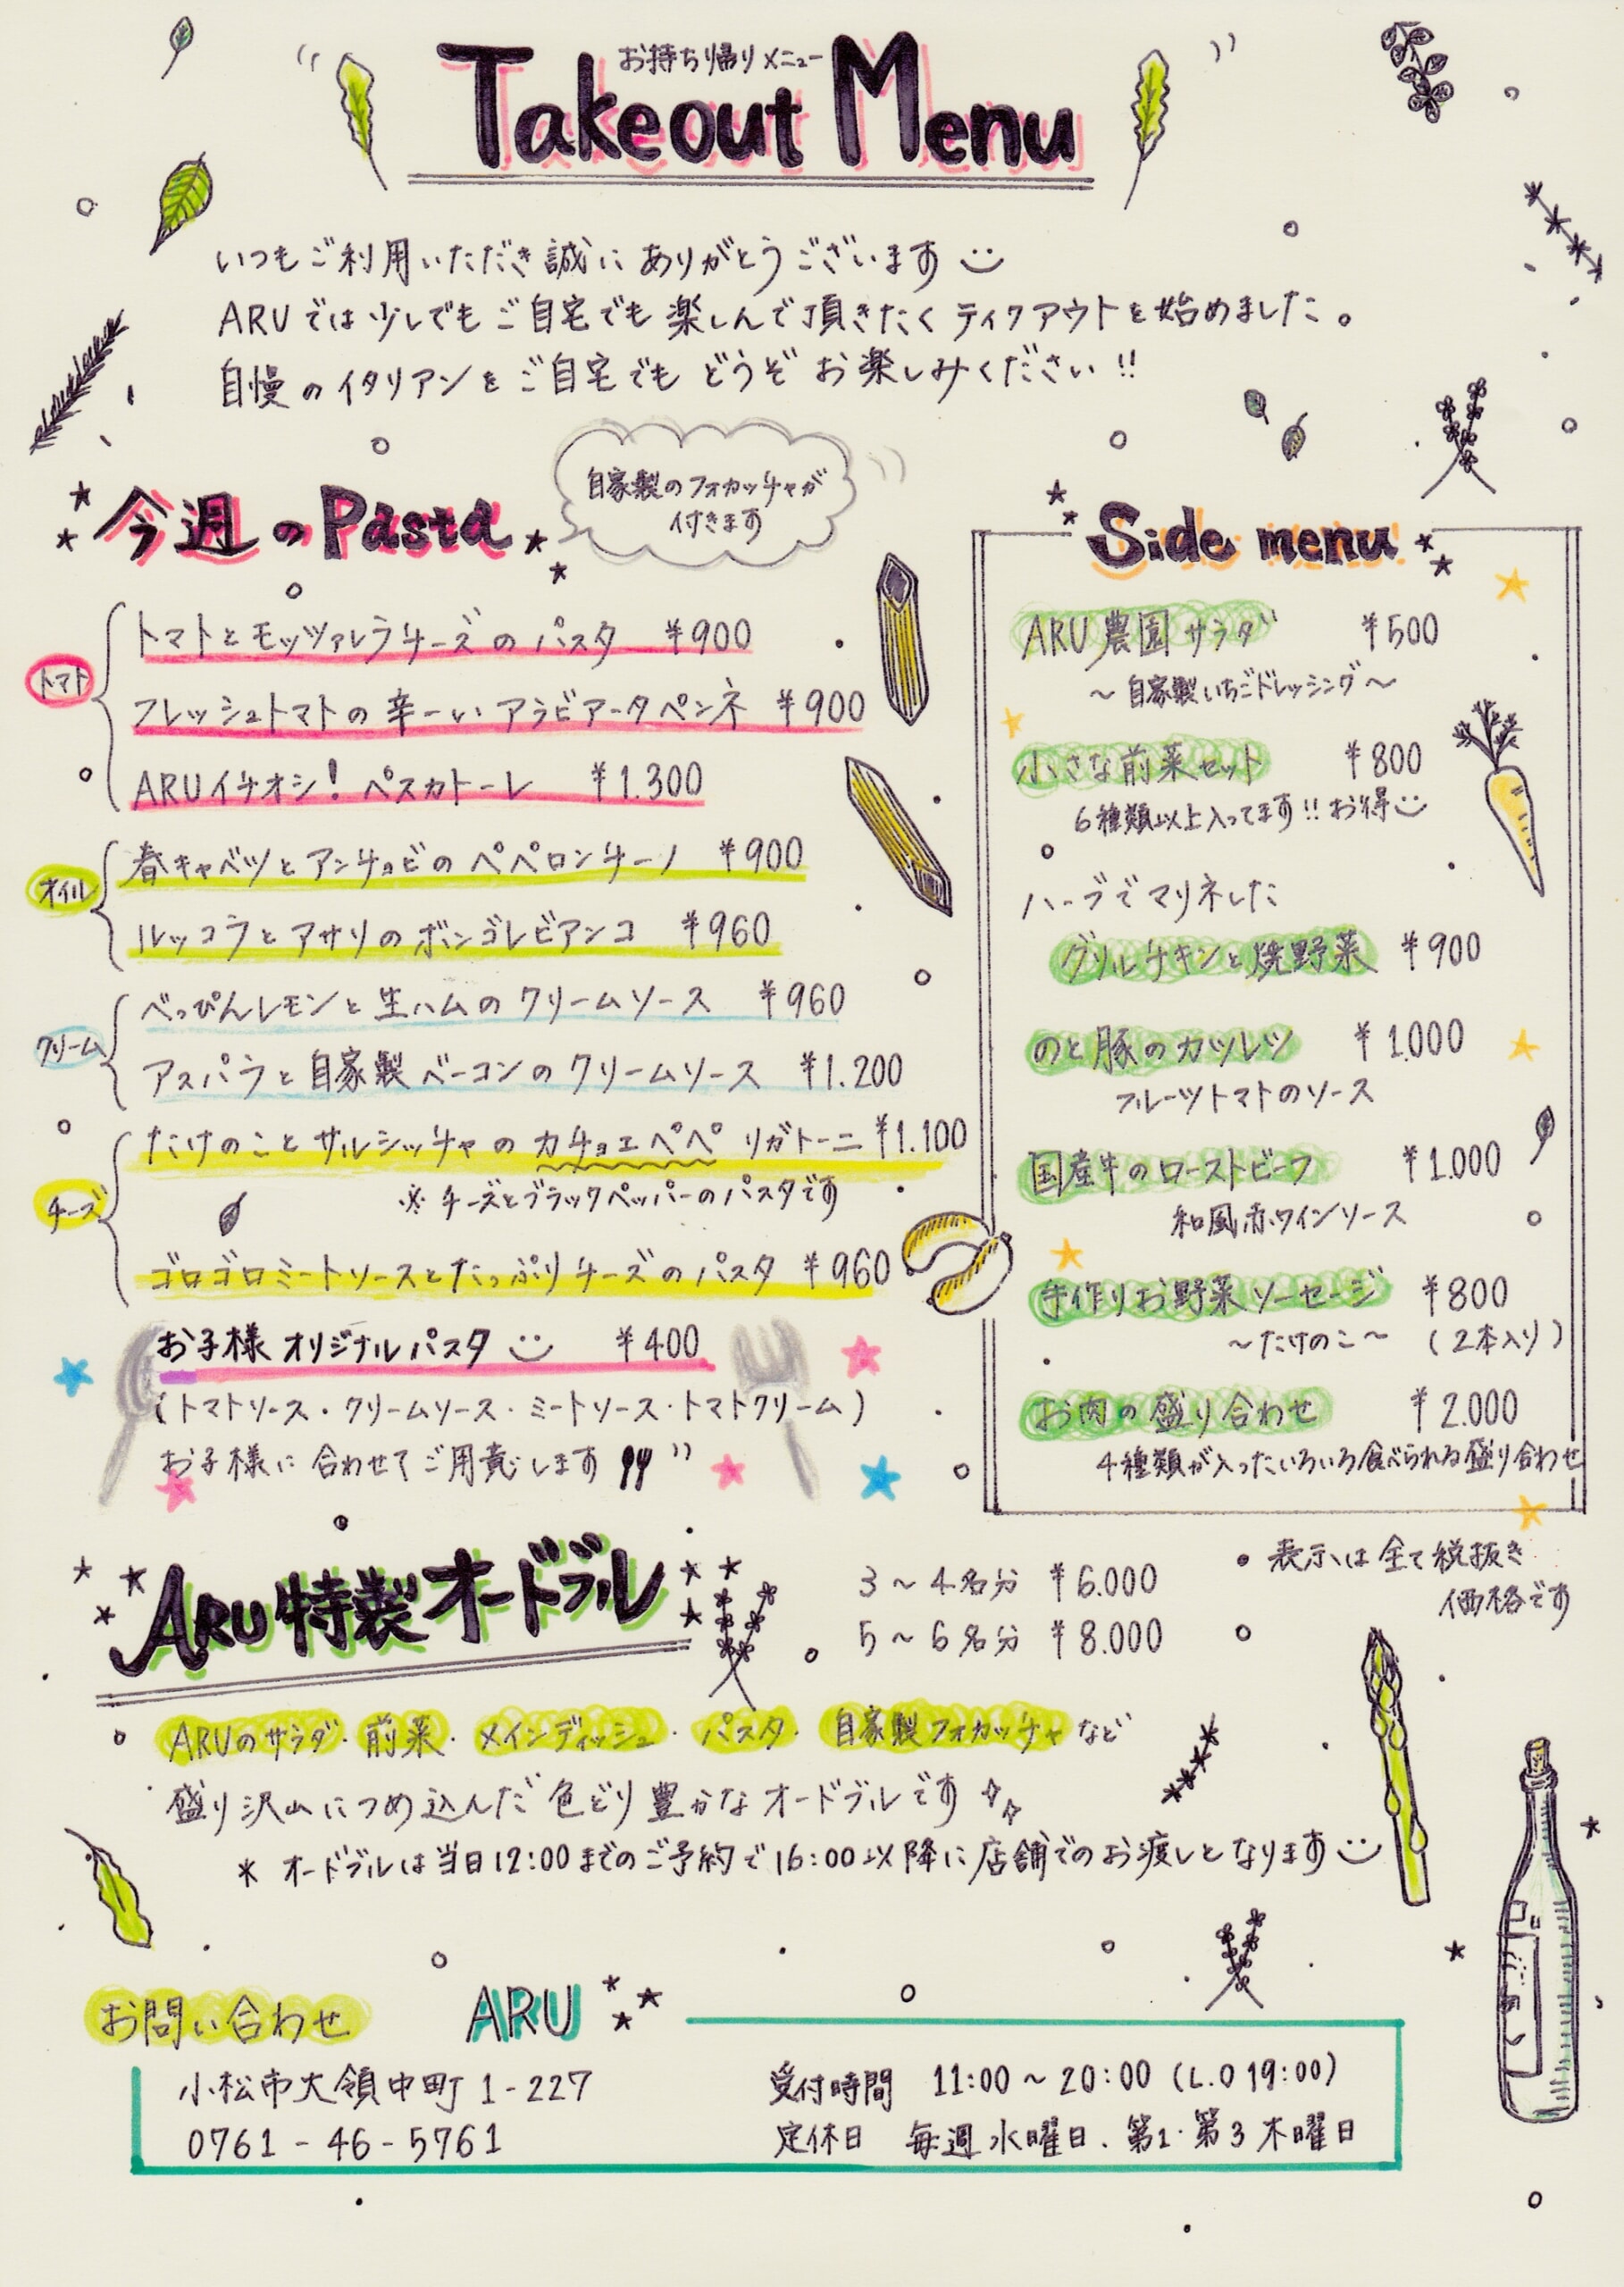 お持ち帰りメニュー
Takeout Menu
いつもご利用いただき誠にありがとうございます
ARUでは少しでもご自宅でも楽しんで頂きたくテイクアウトを始めました。
自慢のイタリアンをご自宅でもどうぞお楽しみください!!
今週のPasta
自家製のフォカッチャが
付きます
トマト
トマトとモッツァレラチーズのパスタ ¥900
フレッシュトマトの辛ーいアラビアータペンネ ¥900
ARUイチオシ!ペスカトーレ ¥1.300
オイル
春キャベツとアンチョビのペペロンチーノ ¥900
ルッコラとアサリのボンゴレビアンコ ¥960
クリーム
べっぴんレモンと生ハムのクリームソース ¥960
アスパラと自家製ベーコンのクリームソース ¥1.200
チーズ
たけのことサルシッチャのカチョエペペ リガトーニ ¥1.100
※チーズとブラックペッパーのパスタです
ゴロゴロミートソースとたっぷりチーズのパスタ ¥960
お子様オリジナルパスタ ¥400
(トマトソース・クリームソース・ミートソース・トマトクリーム)
お子様に合わせてご用意します
Side menu
ARU農園サラダ ¥500
～自家製いちごドレッシング～
小さな前菜セット ¥800
6種類以上入ってます!!お得
ハーブでマリネした
グリルチキンと焼野菜 ¥900
のと豚のカツレツ ¥1.000
フルーツトマトのソース
国産牛のローストビーフ ¥1.000
和風赤ワインソース
手作りお野菜ソーセージ ¥800
～たけのこ～ (2本入り)
お肉の盛り合わせ ¥2.000
4種類が入ったいろいろ食べられる盛り合わせ
・表示は全て税抜き
価格です
ARU特製オードブル
3～4名分 ¥6.000
5～6名分 ¥8.000
ARUのサラダ・前菜・メインディッシュ・パスタ・自家製フォカッチャなど
盛り沢山につめ込んだ色どり豊かなオードブルです
*オードブルは当日12:00までのご予約で16:00以降に店舗でのお渡しとなります
お問い合わせ ARU
小松市大領中町1-227
0761-46-5761
受付時間 11:00～20:00 (L.O 19:00)
定休日 毎週水曜日、第1・第3木曜日